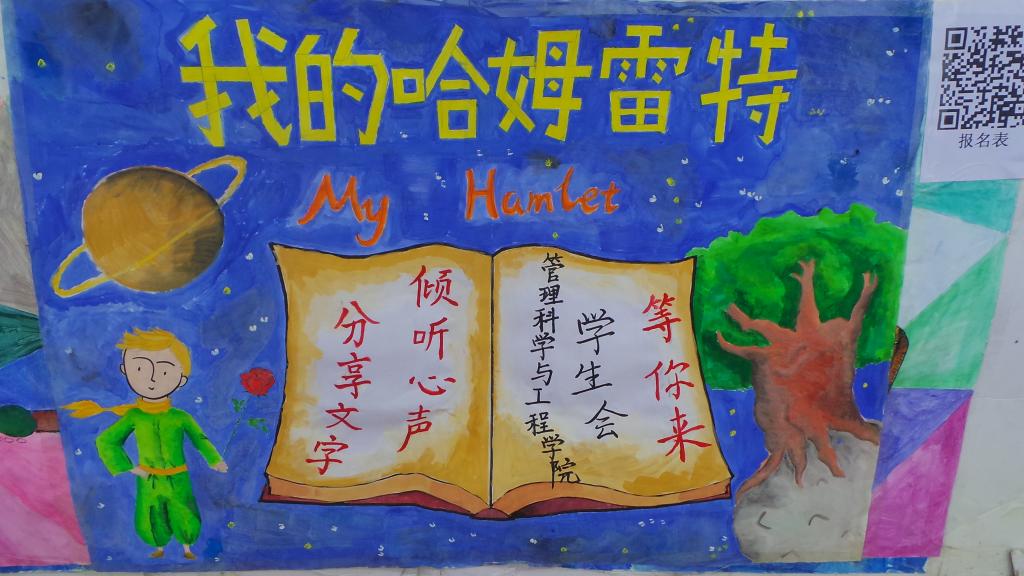 我的哈姆雷特
报名表
My Hamlet
倾听心声
分享文字
等你来
学生会
管理科学与工程学院